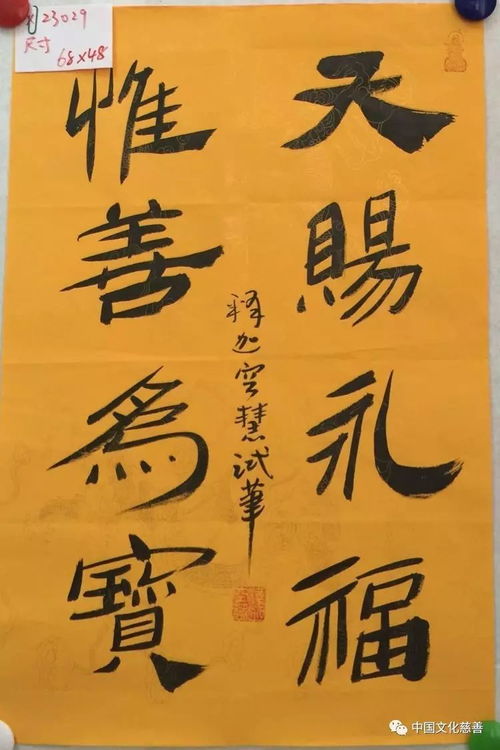 23029
尺寸
68x48
天賜永福
惟善為寳
釋迦空慧試筆
中国文化慈善